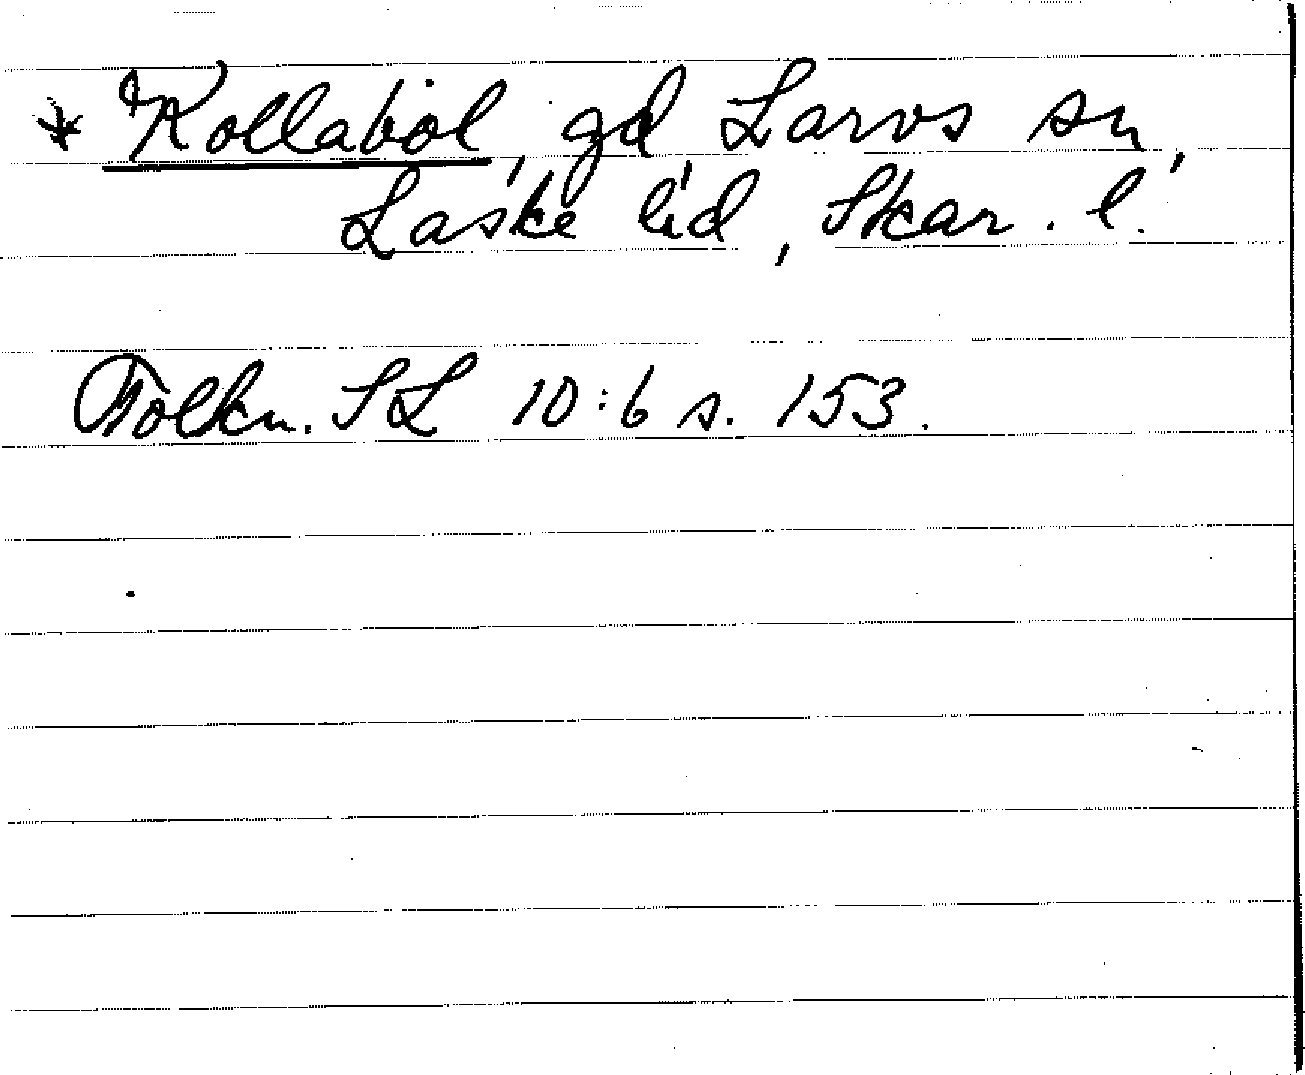 * Kollaböl, gd, Larvs sn,
Laske hd, Skar. l.
Tolkn. SL 10:6 s. 153.